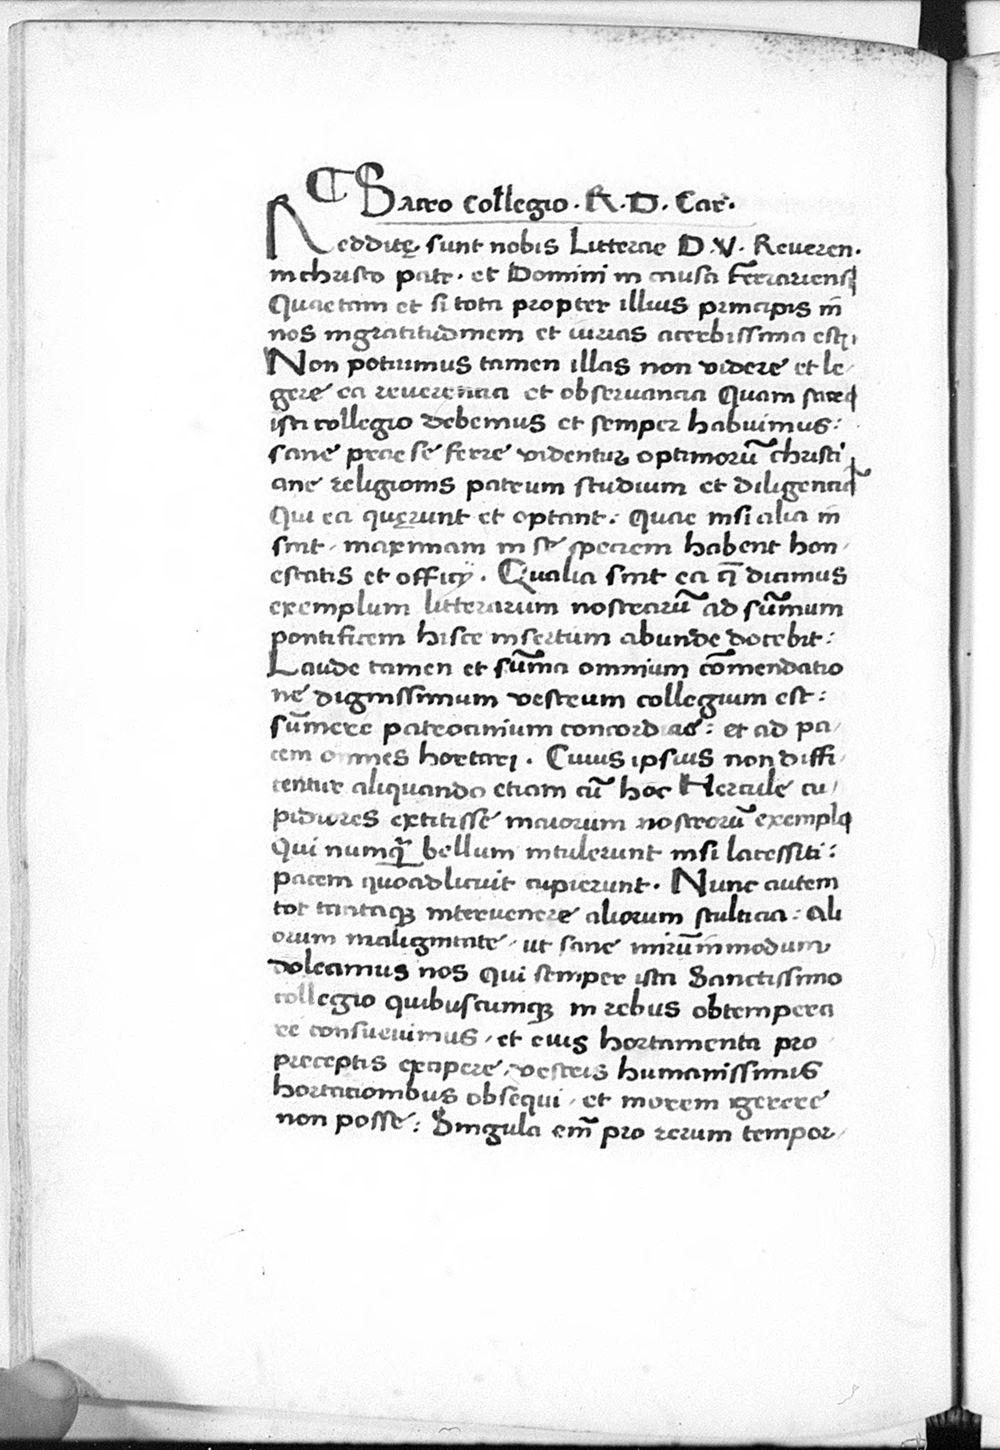 Sacro collegio. R. D. Car.
Redditę sunt nobis Litterae D.V. Reveren.
in christo patr. et Domini in causa ferrariensi
Quae tam et si tota propter illius principis in̄
nos ingratitudinem et iurias acerbissima est:
Non potuimus tamen illas non videre et le-
gere ea reverentia et observancia Quam sacro
isti collegio debemus et semper habuimus:
sane prae se ferre videntur optimorū christi
ane religionis patrum studium et diligenciaꝫ
Qui ea quęrunt et optant: Quae nisi alia in
sint, maximam in se speciem habent hon-
estatis et officij. Qualia sint ea q̄ dicimus
exemplum litterarum nostrarū ad sūmum
pontificem hisce insertum abunde docebit:
Laude tamen et sūma omnium cōmendatio
ne dignissimum vestrum collegium est:
sūmere patrocinium concordiae: et ad pa-
cem omnes hortari. Cuius ipsius non diffi-
tentur aliquando etiam cū hoc Hercule cu-
pidiores extitisse maiorum nostrorū exemplo
Qui numq̄ bellum intulerunt nisi lacessiti:
pacem quoad licuit cupierunt. Nunc autem
tot tantaqꝫ intervenere aliorum stulticia: Ali
orum malignitate, ut sane mirū in modum
doleamus nos qui semper isti Sanctissimo
collegio quibuscumqꝫ in rebus obtempera
re consuevimus, et eius hortamenta pro
preceptis excipere, vestris humanissimis
hortationibus obsequi, et morem gerere
non posse: Singula em̄ pro rerum tempor-